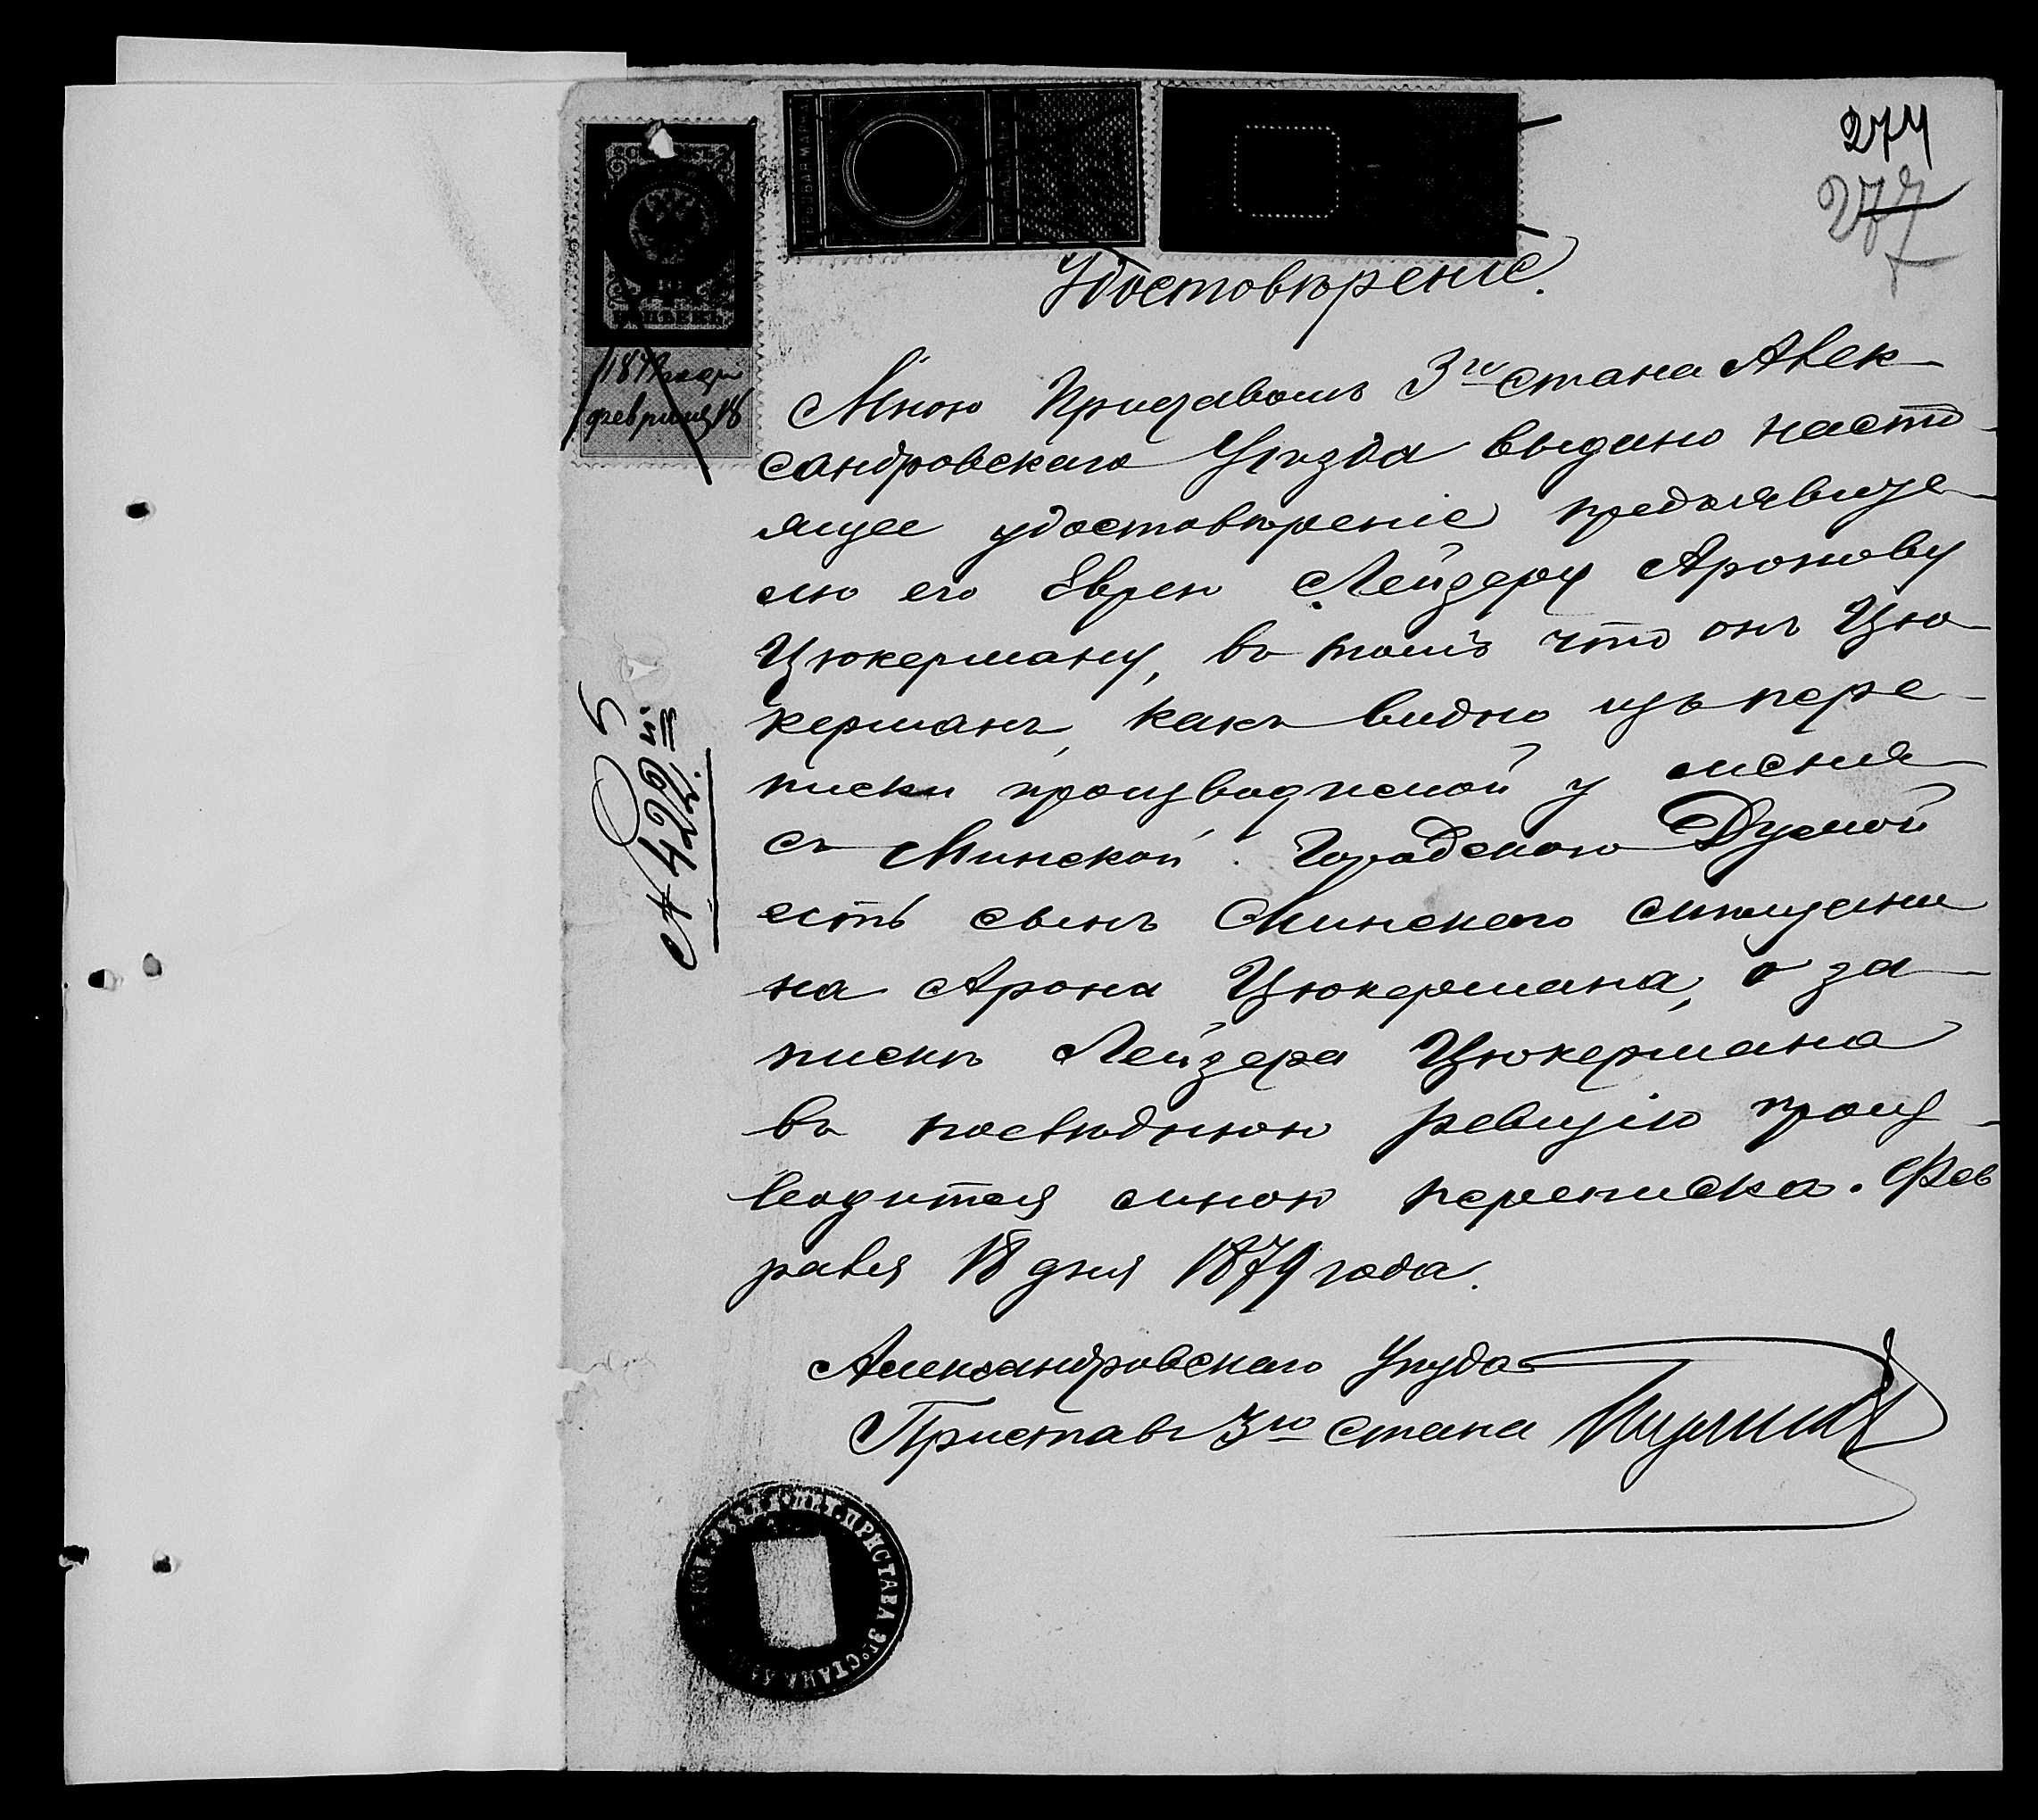 274
277
Удостовѣреніе.
1879 года
февраля 18
Мною Приставомъ 3го стана Алек-
сандровскаго Уѣзда выдано насто-
ящее удостовѣреніе предъявите-
лю его Еврею Лейзеру Аронову
Цюкерману, въ томъ что онъ Цю-
керманъ, какъ видно изъ пере-
писки производимой у меня
съ Минской Городскою Думой
есть сынъ Минскаго мѣщани
на Арона Цюкермана, о за-
пискѣ Лейзера Цюкермана
въ послѣднюю ревизію произ-
водится мною переписка. Фев
раля 18 дня 1879 года.
№ 422
Александровскаго Уѣзда
Приставъ 3го стана
ПРИСТАВА 3го СТАНА